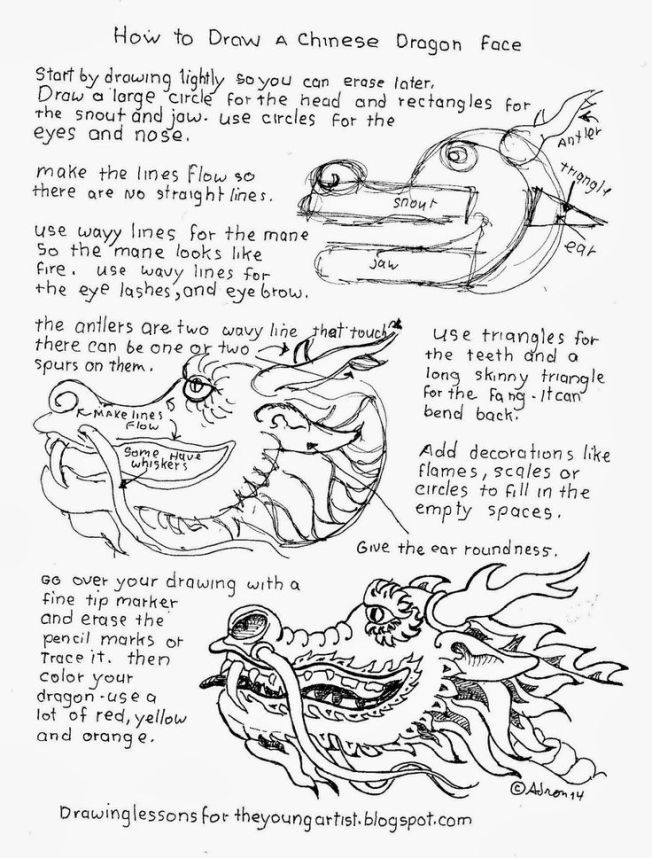 How to Draw a Chinese Dragon Face
Start by drawing lightly so you can erase later.
Draw a large circle for the head and rectangles for
the snout and jaw. use circles for the
eyes and nose.
Antler
triangle
snout
ear
jaw
make the lines flow so
there are no straight lines.
use wavy lines for the mane
So the mane looks like
fire. use wavy lines for
the eye lashes, and eye brow.
the antlers are two wavy line that touch
there can be one or two
spurs on them.
Make lines
flow
Some Have
whiskers
use triangles for
the teeth and a
long skinny triangle
for the fang. It can
bend back.
Add decorations like
flames, scales or
circles to fill in the
empty spaces.
Give the ear roundness.
Go over your drawing with a
fine tip marker
and erase the
pencil marks or
Trace it. then
color your
dragon - use a
lot of red, yellow
and orange.
© Adron 14
Drawing lessons for theyoungartist.blogspot.com